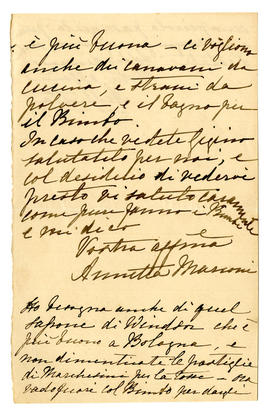 è più buona – ci vogliono
anche dei canavacci da
cucina, e strani da
polvere, e il bagno per
il Bimbo.
In caso che vedete Gigino
salutatelo per noi, e
col desiderio di vedervi
presto vi saluto caramente
come pure fanno i Bimbi
e mi dico
Vostra affma
Annetta Marconi
Ho bisogna anche di quel
sapone di Windsor che è
più buono a Bologna, e
non dimenticate le pastiglie
di Marchesini per la tosse – ora
vado fuori col Bimbo per dargli